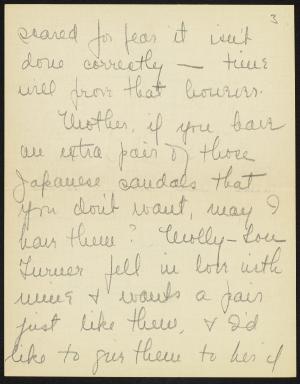 3
scared for fear it isn't
done correctly — time
will prove that however.
Mother, if you have
an extra pair of those
Japanese sandals that
you don't want, may I
have them? Molly-Lou
Turner fell in love with
mine & wants a pair
just like them, & I'd
like to give them to her if